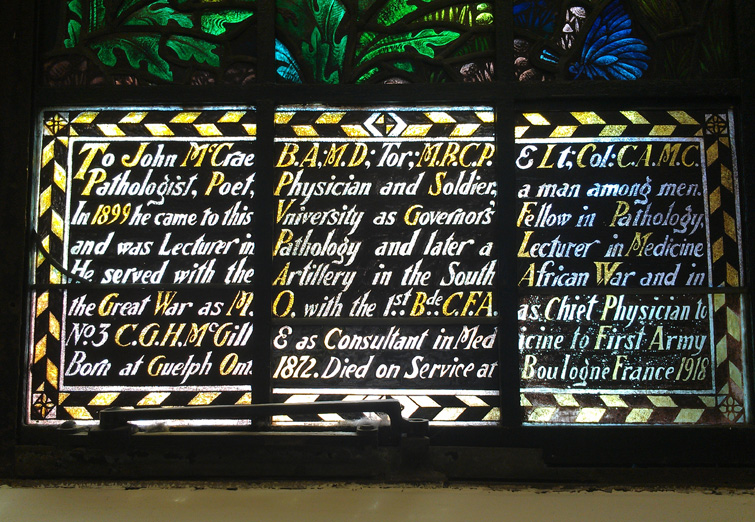 To John McCrae B.A; M.D; Tor; M.R.C.P. & Lt; Col: C.A.M.C.
Pathologist, Poet, Physician and Soldier, a man among men.
In 1899 he came to this Vniversity as Governor's Fellow in Pathology,
and was Lecturer in Pathology and later a Lecturer in Medicine
He served with the Artillery in the South African War and in
the Great War as M. O. with the 1st. Bde. C.F.A. as Chief Physician to
No. 3 C.G.H. McGill & as Consultant in Med icine to First Army
Born at Guelph Ont. 1872. Died on Service at Boulogne France 1918